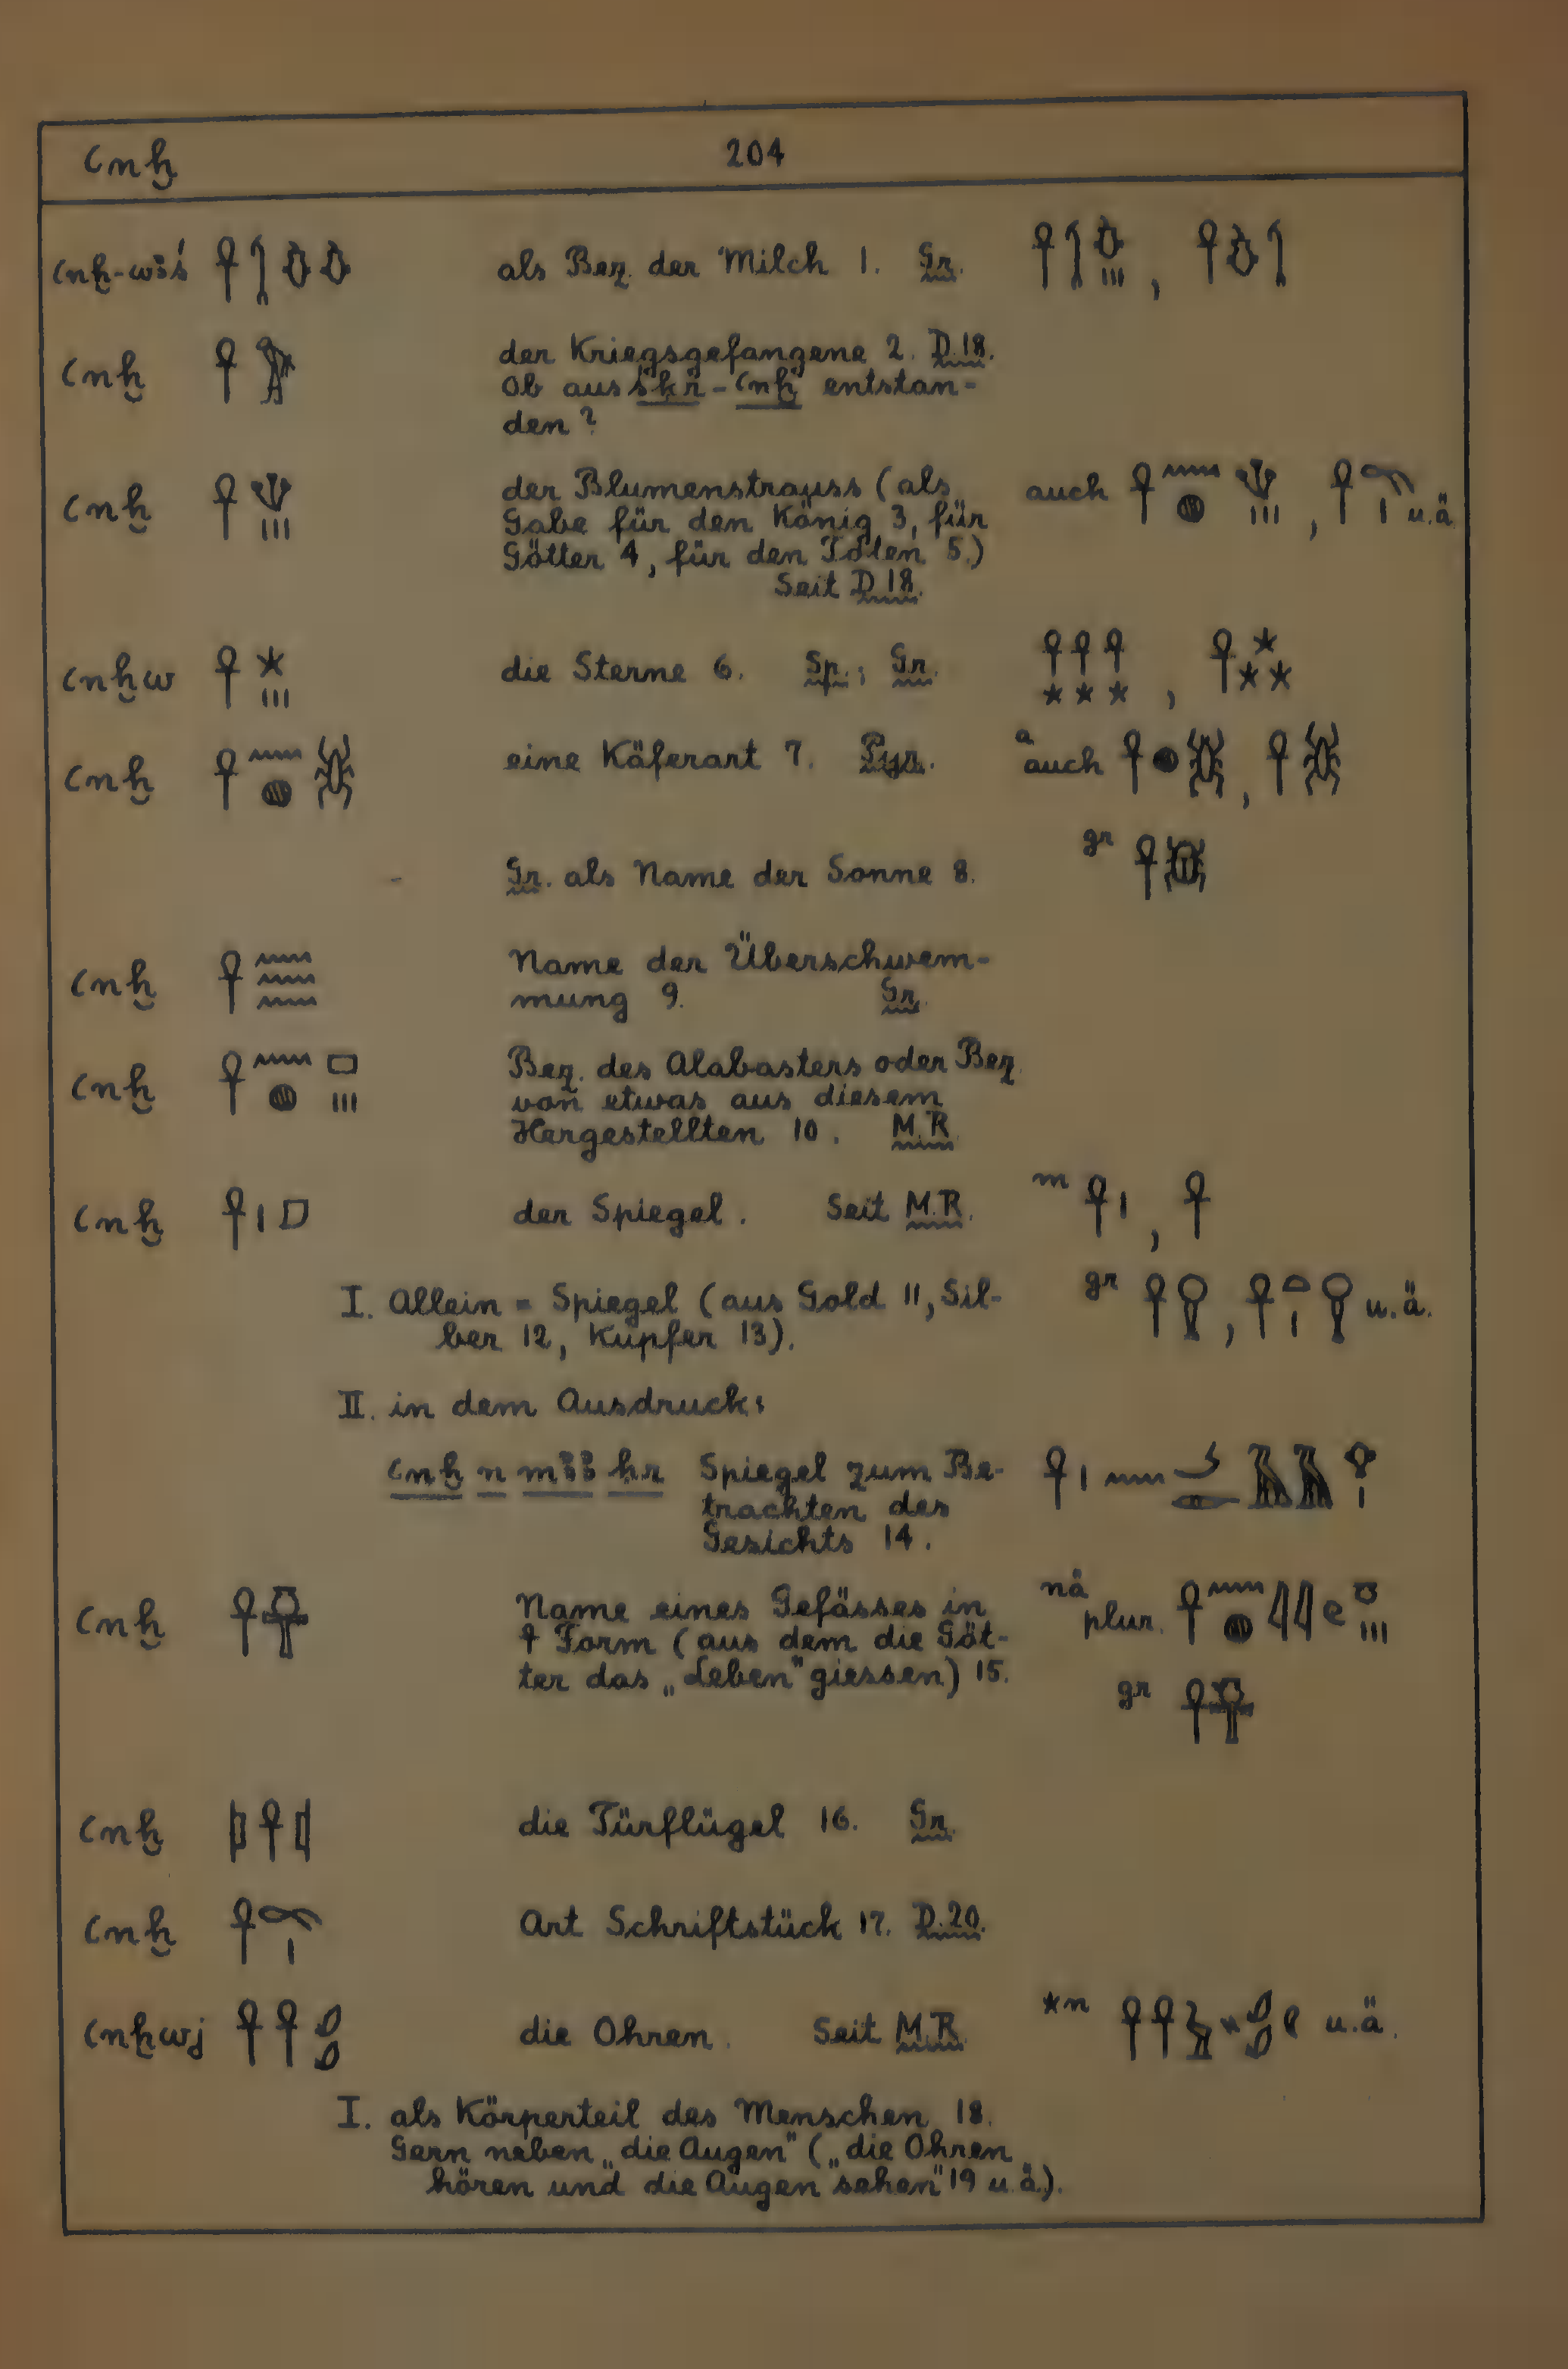 ꜥnḫ 204
ꜥnḫ-wꜣś 𓋹𓌀𓎺𓎺 als Bez. der Milch 1. Gr.
ꜥnḫ 𓋹 der Kriegsgefangene 2. D. 18.
Ob aus śḳr-ꜥnḫ entstan-
den?
ꜥnḫ 𓋹 der Blumenstrauss (als auch 𓋹𓈖𓐍 , 𓋹 u.ä.
Gabe für den König 3, für
Götter 4, für den Toten 5.)
Seit D. 18.
ꜥnḫw 𓋹𓇼𓏥 die Sterne 6. Sp.; Gr. 𓋹𓋹𓋹𓇼𓇼𓇼 , 𓋹𓇼𓇼𓇼
ꜥnḫ 𓋹𓈖𓐍𓆣 eine Käferart 7. Pyr. a auch 𓋹𓐍𓆣 , 𓋹𓆣
Gr. als Name der Sonne 8. gr 𓋹𓆣
ꜥnḫ 𓋹𓈗 Name der Überschwem-
mung 9. Gr.
ꜥnḫ 𓋹𓈖𓐍𓈙𓏥 Bez. des Alabasters oder Bez.
von etwas aus diesem
Hergestellten 10. M. R.
ꜥnḫ 𓋹𓏤 der Spiegel. Seit M. R. m 𓋹𓏤 , 𓋹
I. Allein = Spiegel (aus Gold 11, Sil- gr 𓋹 , 𓋹𓏏𓏤 u.ä.
ber 12, Kupfer 13).
II. in dem Ausdruck:
ꜥnḫ n mꜣꜣ ḥr Spiegel zum Be- 𓋹𓏤𓈖𓌳𓁹𓄿𓄿𓁷𓏤
trachten des
Gesichts 14.
ꜥnḫ 𓋹 Name eines Gefässes in nä plur. 𓋹𓈖𓐍𓇌𓏲𓏌𓏥
𓋹 Form (aus dem die Göt-
ter das „Leben" giessen) 15. gr 𓋹
ꜥnḫ 𓋹 die Türflügel 16. Gr.
ꜥnḫ 𓋹𓏤 Art Schriftstück 17. D. 20.
ꜥnḫwj 𓋹𓋹𓄔𓄔 die Ohren. Seit M. R. *n 𓋹𓋹 u.ä.
I. als Körperteil des Menschen 18.
Gern neben „die Augen" („die Ohren
hören und die Augen sehen" 19 u.ä.).